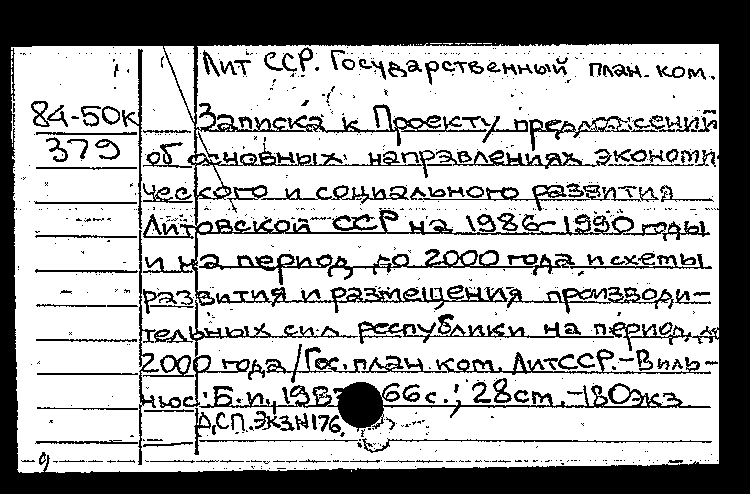 Лит ССР. Государственный план. ком.
84-50к
379
Записка к Проекту предложений
об основных направлениях экономи
ческого и социального развития
Литовской ССР на 1986-1990 годы
и на период до 2000 года и схемы
развития и размещения производи-
тельных сил республики на период до
2000 года / Гос. план. ком. ЛитССР.-Виль-
нюс: Б.и., 66с.; 28cm.-180экз
ДСП. Экз.N176.